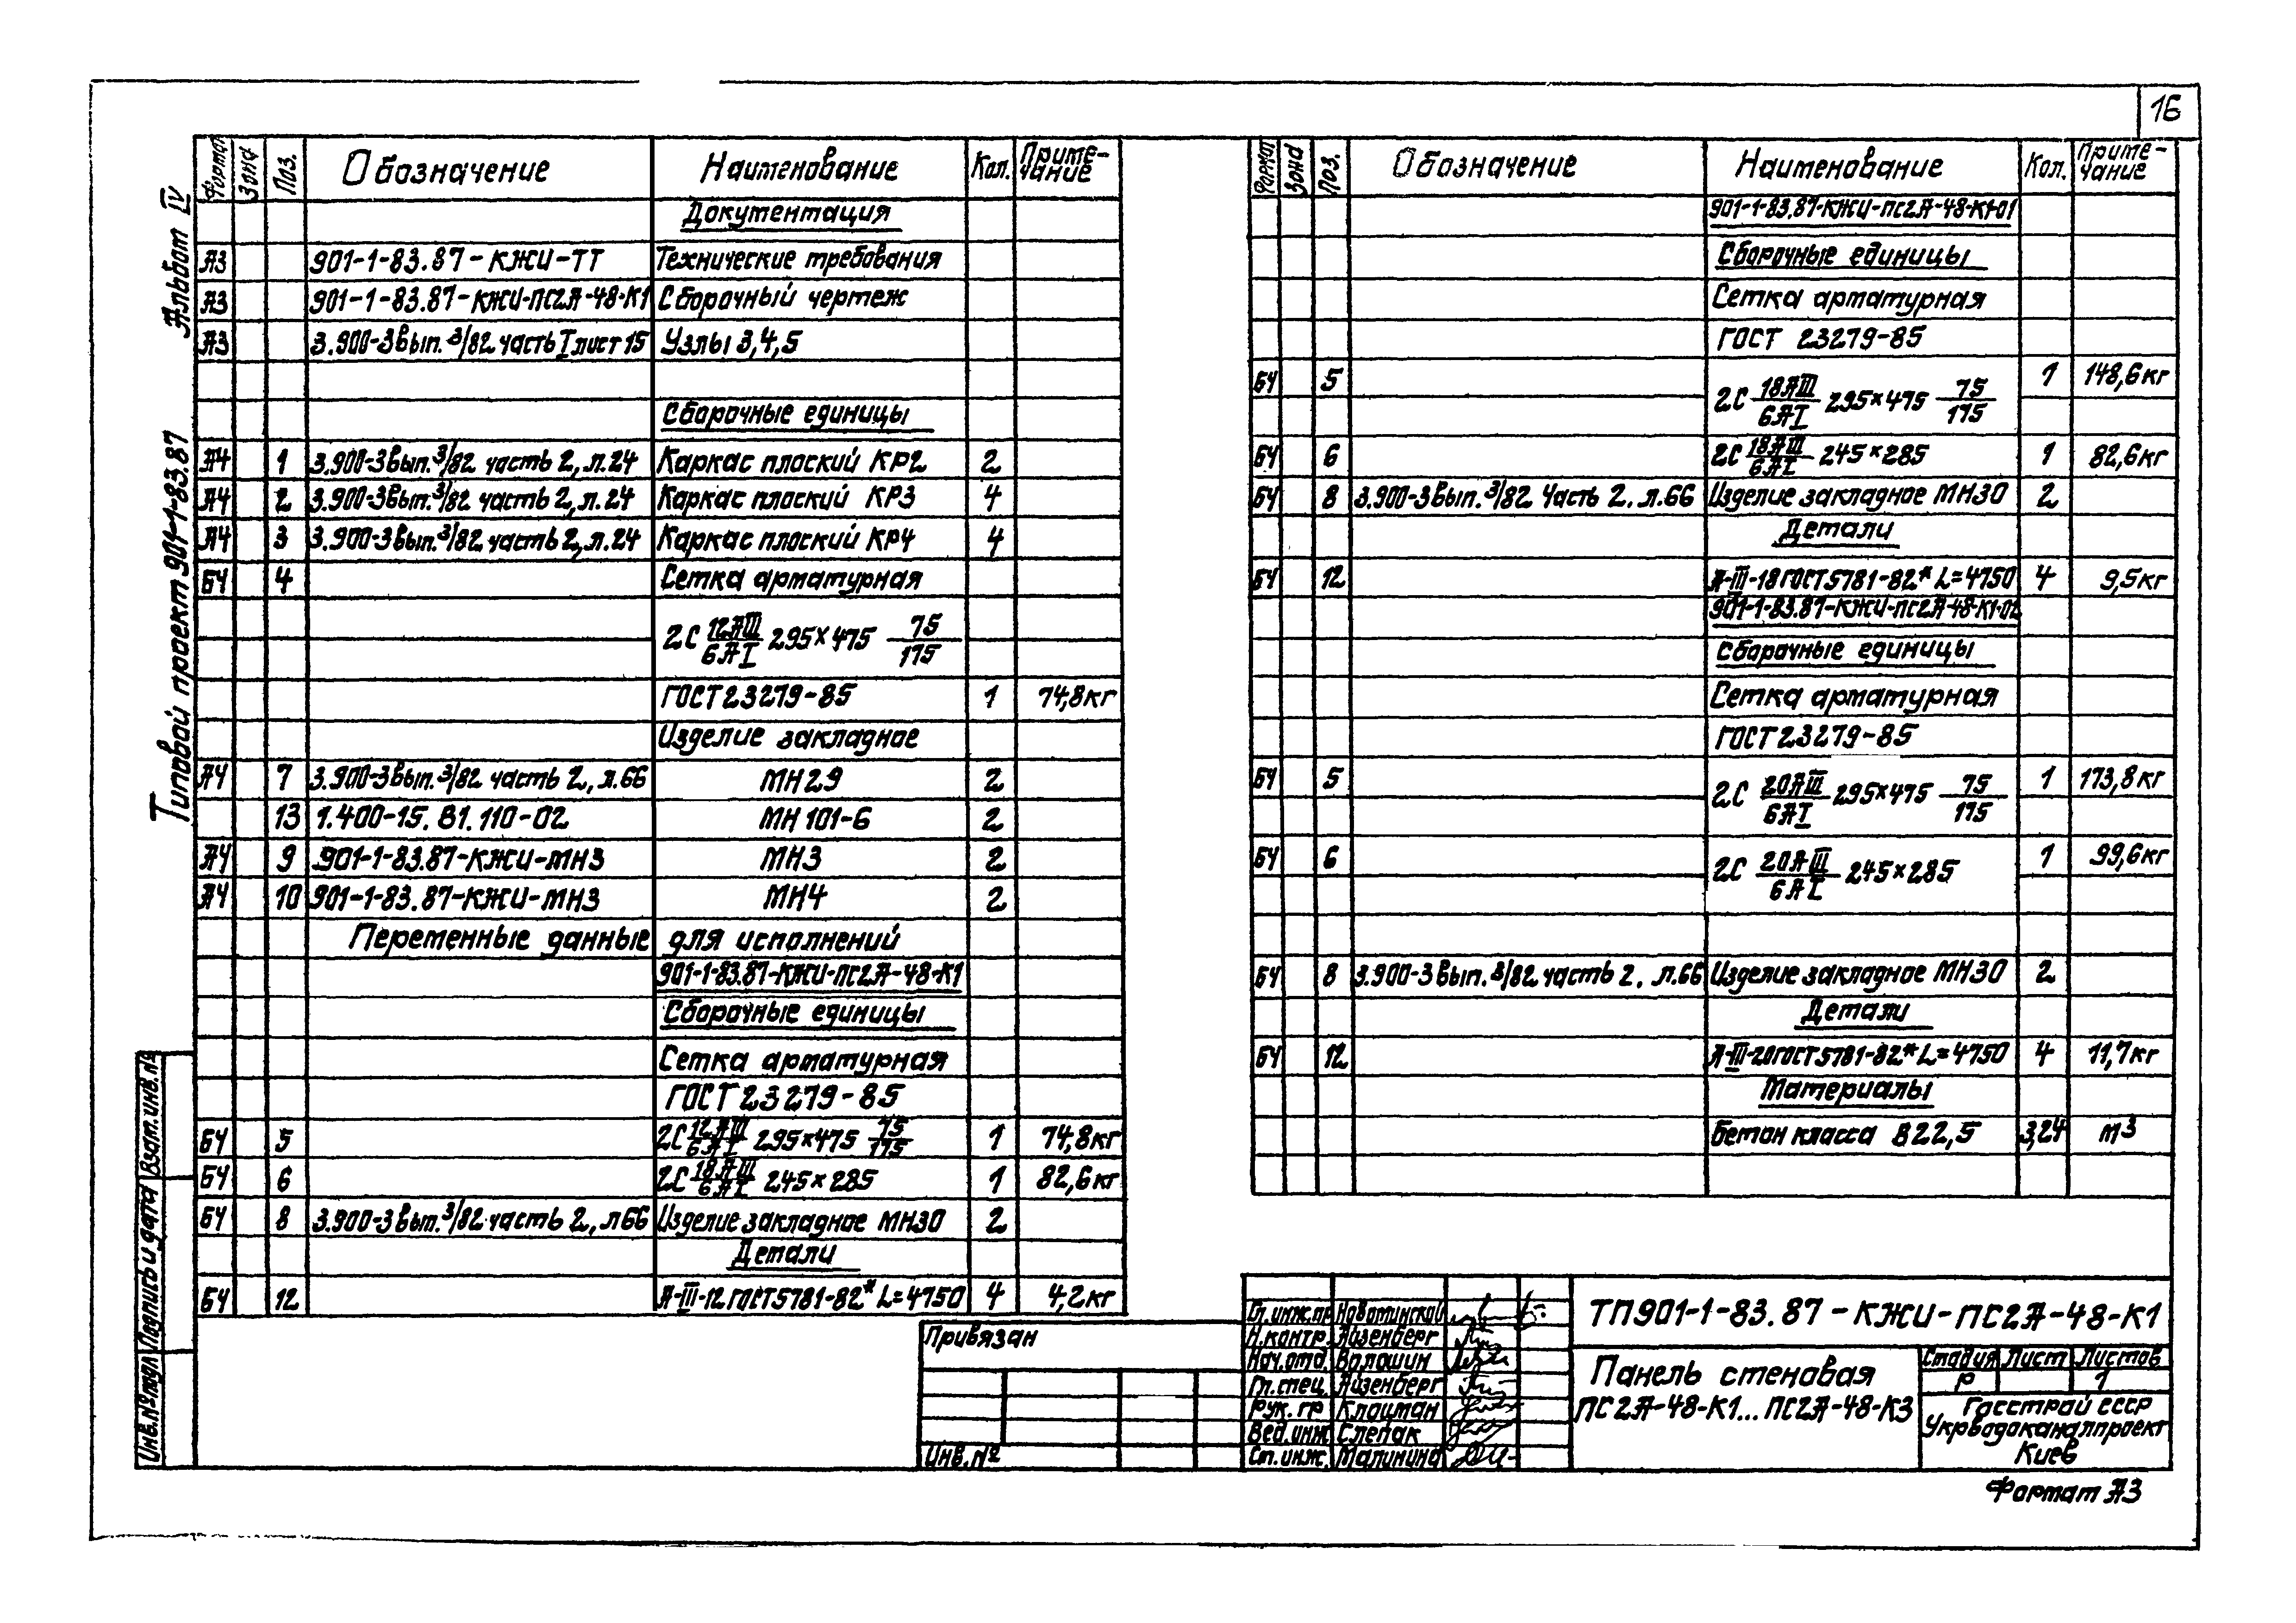 16
Альбом IV
Типовой проект 901-1-83.87
Формат Зона Поз. Обозначение Наименование Кол. Приме-чание
Документация
А3 901-1-83.87-КЖИ-ТТ Технические требования
А3 901-1-83.87-КЖИ-ПС2А-48-К1 Сборочный чертеж
А3 3.900-3 вып. 3/82 часть I лист 15 Узлы 3,4,5
Сборочные единицы
А4 1 3.900-3 вып. 3/82 часть 2, л.24 Каркас плоский КР2 2
А4 2 3.900-3 вып. 3/82 часть 2, л.24 Каркас плоский КР3 4
А4 3 3.900-3 вып. 3/82 часть 2, л.24 Каркас плоский КР4 4
БЧ 4 Сетка арматурная
2С 12АIII/6АI 295×475 75/175
ГОСТ 23279-85 1 74,8кг
Изделие закладное
А4 7 3.900-3 вып. 3/82 часть 2, л.66 МН29 2
13 1.400-15. В1. 110-02 МН 101-6 2
А4 9 901-1-83.87-КЖИ-МН3 МН3 2
А4 10 901-1-83.87-КЖИ-МН3 МН4 2
Переменные данные для исполнений
901-1-83.87-КЖИ-ПС2А-48-К1
Сборочные единицы
Сетка арматурная
ГОСТ 23279-85
БЧ 5 2С 12АIII/6АI 295×475 75/175 1 74,8кг
БЧ 6 2С 18АIII/6АI 245×285 1 82,6кг
БЧ 8 3.900-3 вып. 3/82 часть 2, л 66 Изделие закладное МН30 2
Детали
БЧ 12 А-III-12 ГОСТ 5781-82* L=4750 4 4,2кг
Формат Зона Поз. Обозначение Наименование Кол. Приме-чание
901-1-83.87-КЖИ-ПС2А-48-К1-01
Сборочные единицы
Сетка арматурная
ГОСТ 23279-85
БЧ 5 2С 18АIII/6АI 295×475 75/175 1 148,6кг
БЧ 6 2С 18АIII/6АI 245×285 1 82,6кг
БЧ 8 3.900-3 вып. 3/82 Часть 2. л.66 Изделие закладное МН30 2
Детали
БЧ 12 А-III-18 ГОСТ 5781-82* L=4750 4 9,5кг
901-1-83.87-КЖИ-ПС2А-48-К1-02
Сборочные единицы
Сетка арматурная
ГОСТ 23279-85
БЧ 5 2С 20АIII/6АI 295×475 75/175 1 173,8кг
БЧ 6 2С 20АIII/6АI 245×285 1 99,6кг
БЧ 8 3.900-3 вып. 3/82 часть 2. л.66 Изделие закладное МН30 2
Детали
БЧ 12 А-III-20 ГОСТ 5781-82* L=4750 4 11,7кг
Материалы
бетон класса В22,5 3,24 м3
Взам.инв.№
Подпись и дата
Инв.№ подл
Привязан
Инв.№
Гл.инж.пр Новотинской
Н.контр. Айзенберг
Нач.отд. Волошин
Гл.спец. Айзенберг
Рук. гр Клоцман
Вед.инж Слепак
Ст.инж. Малинина
ТП901-1-83.87-КЖИ-ПС2А-48-К1
Панель стеновая
ПС2А-48-К1...ПС2А-48-К3
Стадия Лист Листов
Р 1
Госстрой СССР
Укрводоканалпроект
Киев
Формат А3